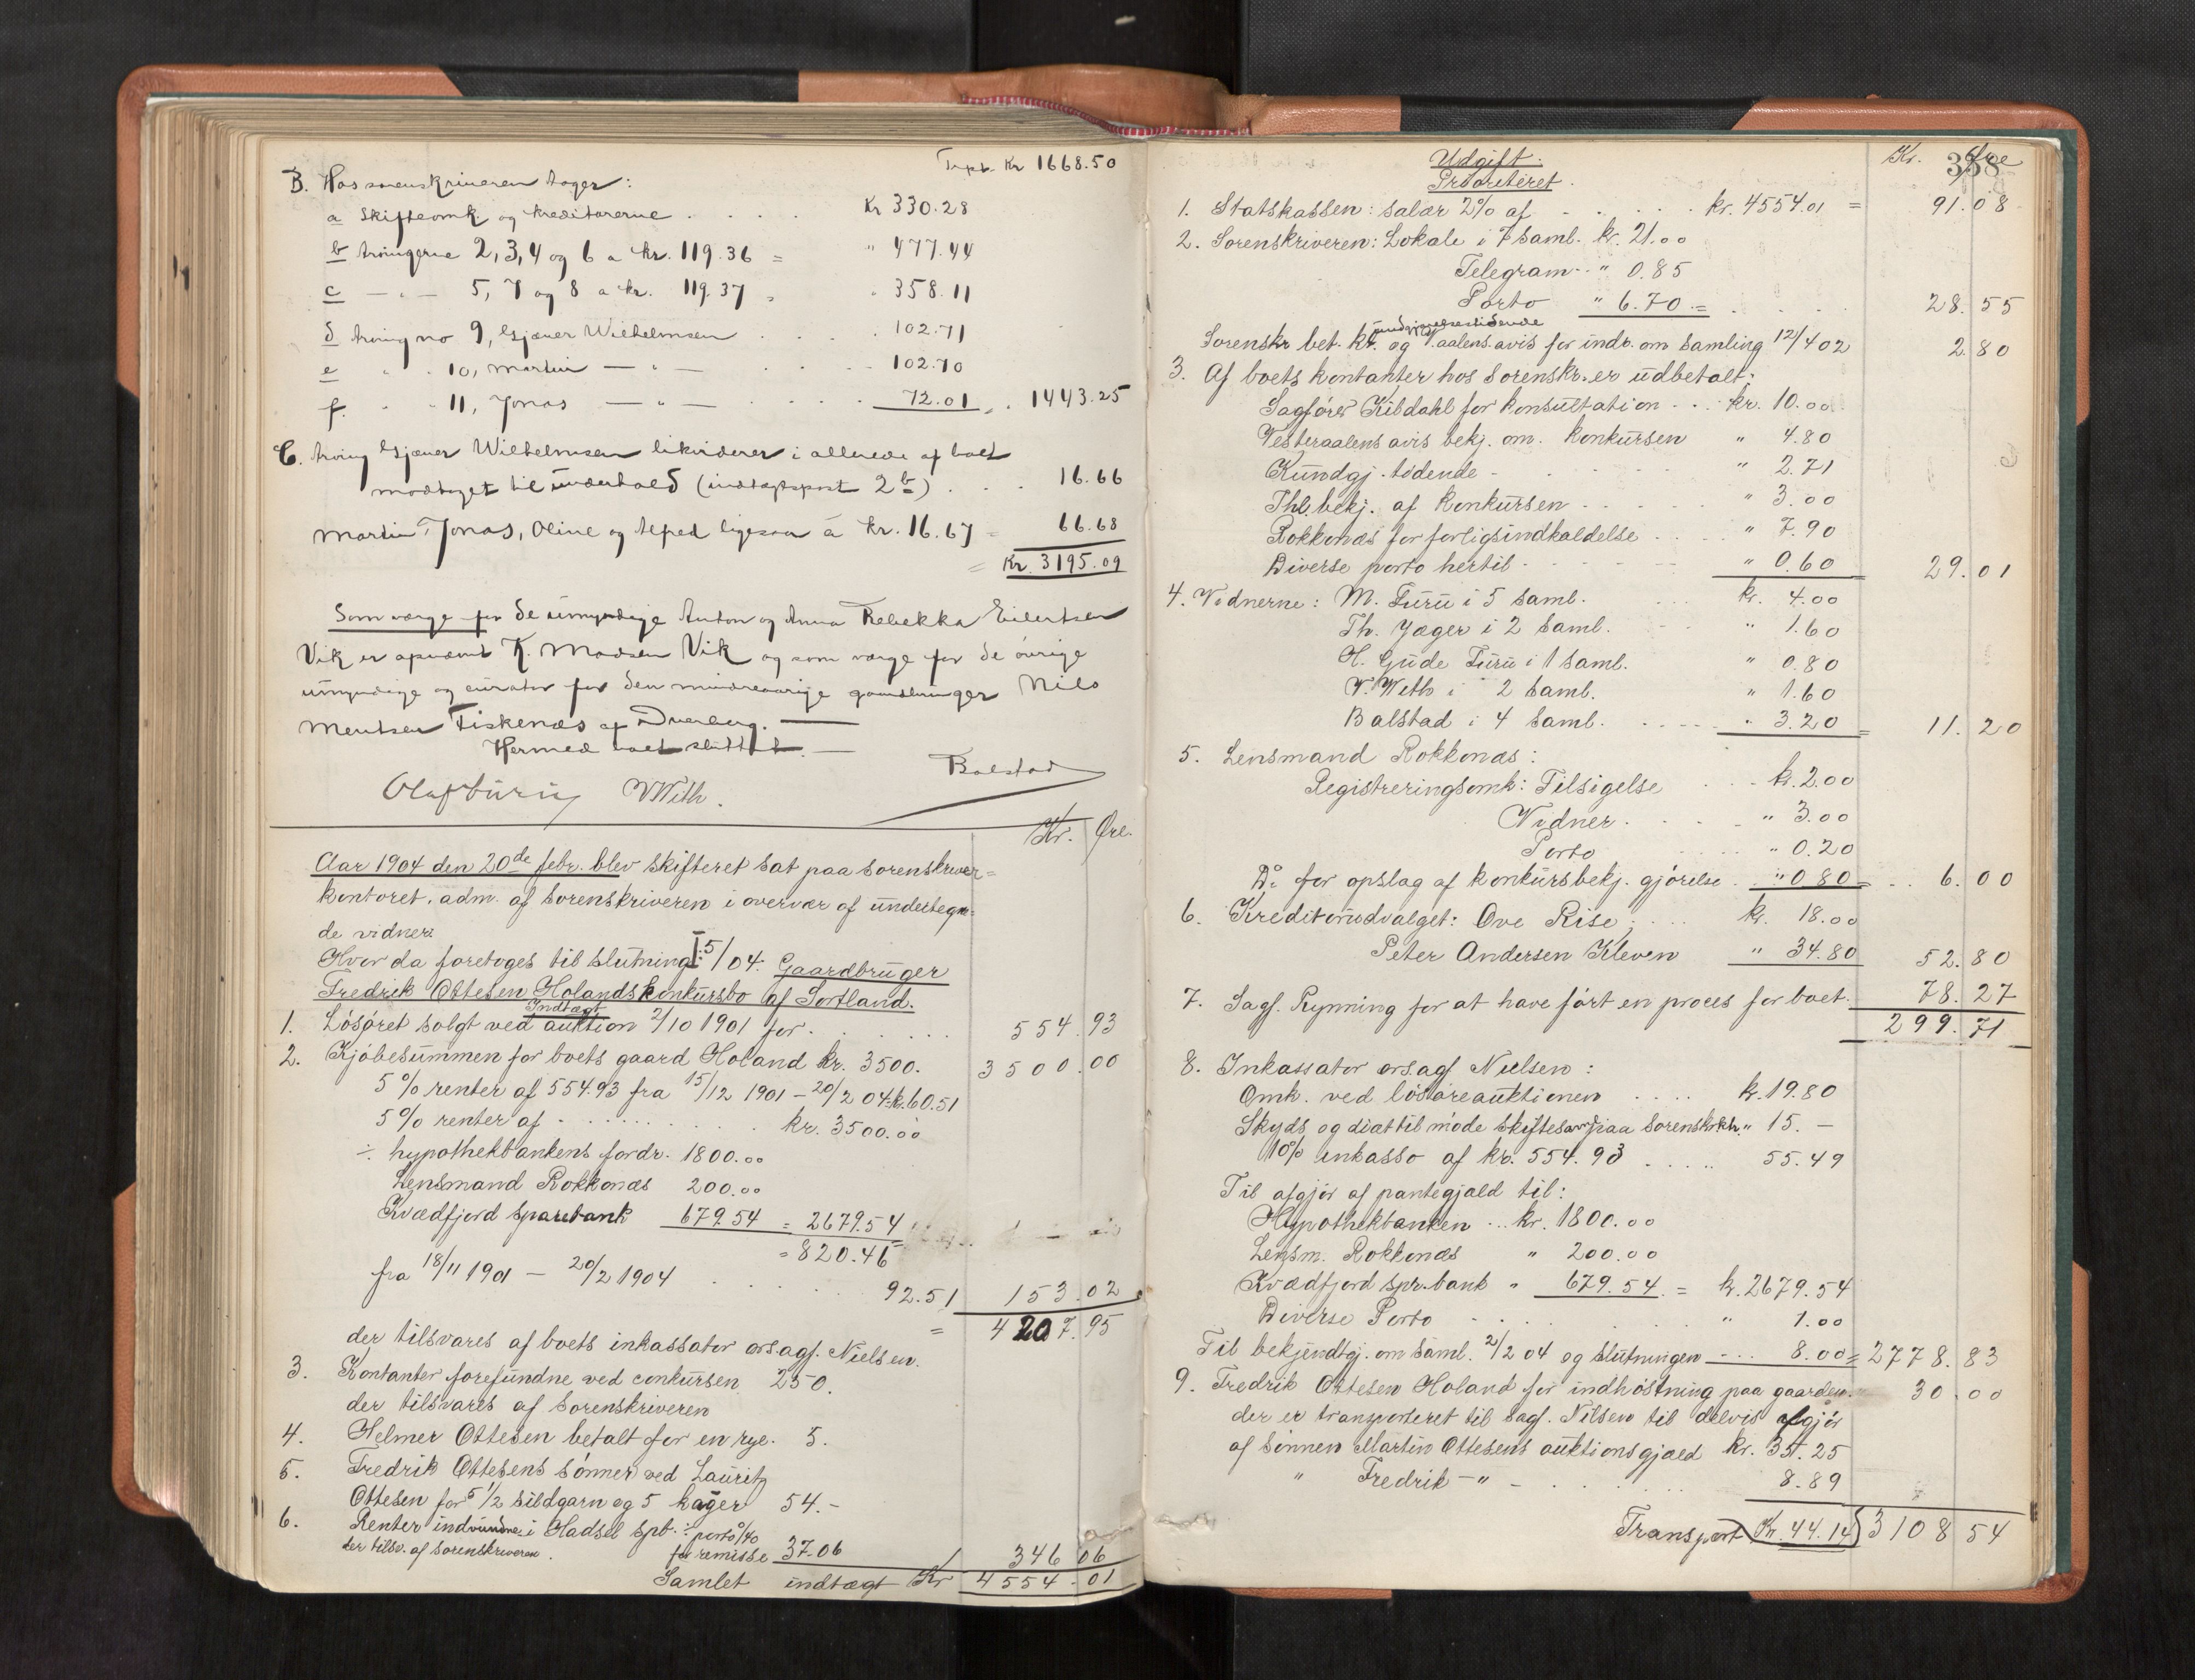 Trpt. Kr 1668.50
B. Hos sorenskriveren tages:
a Skifteomk. og kreditorerne . . . . Kr 330.28
b Arvingerne 2, 3, 4 og 6 a kr. 119.36 = " 477.44
c — " — 5, 7 og 8 a kr. 119.37 = " 358.11
d Arving no 9, Ejner Wilhelmsen . . . . 102.71
e " " 10, Martin — " — . . . 102.70
f. " " 11, Jonas — " — . . . . 72.01 = . 1443.25
C. Arving Ejner Wilhelmsen likviderer i allerede af boet
modtaget til underhold (indtægtspost 2 b) . . . 16.66
Martin, Jonas, Oline og Alfred ligesaa á kr. 16.67 = 66.68
= Kr. 3195.09
Som værge for de umyndige Anton og Anna Rebekka Eilertsen
Vik er opnævnt K. Madsen Vik og som værge for de øvrige
umyndige og curator for den mindreaarige gaardbruger Nils
Mentsen Fiskenæs af Dverberg. —
Hermed boet sluttet. —
Balstad
Olaf Furu VWith.
Kr. Øre.
Aar 1904 den 20de febr. blev skifteret sat paa sorenskriver=
kontoret, adm. af sorenskriveren i overvær af undertegne=
de vidner.
Hvor da foretoges til slutning I: 5/04. Gaardbruger
Fredrik Ottesen Holands konkursbo af Sortland.
Indtægt
1. Løsøret solgt ved auktion 2/10 1901 for . . . . . 554.93
2. Kjøbesummen for boets gaard Holand kr. 3500. 3500.00
5% renter af 554.93 fra 15/12 1901 – 20/2 04 = k. 60.51
5% renter af . . . . . . . . . kr. 3500.00
÷ hypothekbankens fordr. 1800.00
Lensmand Rokkonæs 200.00
Kvædfjord sparebank 679.54 = 2679.54
= 820.46
fra 18/11 1901 – 20/2 1904 . . . . 92.51 153.02
= 4207.95
der tilsvares af boets inkassator o.r.sagf. Nielsen.
3. Kontanter forefundne ved conkursen 250.
der tilsvares af Sorenskriveren
4. Helmer Ottesen betalt for en rye. 5.
5. Fredrik Ottesens sønner ved Lauritz
Ottesen for 5 1/2 sildgarn og 5 kager 54.-
6. Renter indvundne i Hadsel spb. ÷ porto 0/40
der tilsv. af sorenskriveren. for remisse 37.06 346 06
Samlet indtægt Kr 4554.01
Udgift. Kr. Øre
338
Prioriteret.
1. Statskassen: salær 2% af . . . . . kr. 4554.01 = 91.08
2. Sorenskriveren: Lokale i 7 saml. kr. 21.00
Telegram - " 0.85
Porto " 6.70 = . . . . 28.55
kundgjørelsestidende
Sorenskr bet. kr. og V.aalens avis for indr. om samling 12/4 02 2.80
3. Af boets kontanter hos sorenskr. er udbetalt:
Sagfører Kildahl for konsultation . . . kr. 10.00
Vesteraalens avis bekj. om. konkursen " 4.80
Kundgj. tidende - . . . . . " 2.71
Thl. bekj. af konkursen . . . . . " 3.00
Rokkonæs for forligsindkaldelse . . . . " 7.90
Diverse porto hertil - - - - - " 0.60 29.01
4. Vidnerne: M. Furu i 5 saml. . . . kr. 4.00
Th. Jæger i 2 saml. . . . " 1.60
H. Gude Furu i 1 saml. " 0.80
V. With i 2 saml. " 1.60
Balstad i 4 saml. . . . . " 3.20 = 11.20
5. Lensmand Rokkonæs:
Registreringsomk: Tilsigelse . . . kr. 2.00
Vidner . . . . " 3.00
Porto . . . . " 0.20
Do for opslag af konkursbekj. gjørelse . " 0.80 = . . 6.00
6. Kreditorudvalget: Ove Rise . . . kr. 18.00
Peter Andersen Kleven " 34.80 52.80
7. Sagf. Rynning for at have ført en proces for boet. 78.27
299.71
8. Inkassator o.r.sagf Nielsen:
Omk. ved løsøreauktionen . . . . kr. 19.80
Skyds og diæt til møde skiftesaml. paa sorenskrk. " 15. –
10% inkasso af kr. 554.93 . . . . . 55.49
Til afgjør af pantegjæld til:
Hypothekbanken . . . kr. 1800.00
Lensm. Rokkonæs " 200.00
Kvædfjord spr.bank " 679.54 = kr. 2679.54
Diverse Porto . . . . . " 1.00
Til bekjendtgj. om saml. 2/2 04 og slutningen . . . 8.00 = 2778.83
9. Fredrik Ottesen Holand for indhøstning paa gaarden . 30.00
der er transporteret til sagf. Nilsen til delvis afgjør
af sønnen Martin Ottesens auktionsgjæld kr. 35.25
" Fredrik — " — . . . . . . 8.89
Transport Kr. 44.14 3108 54